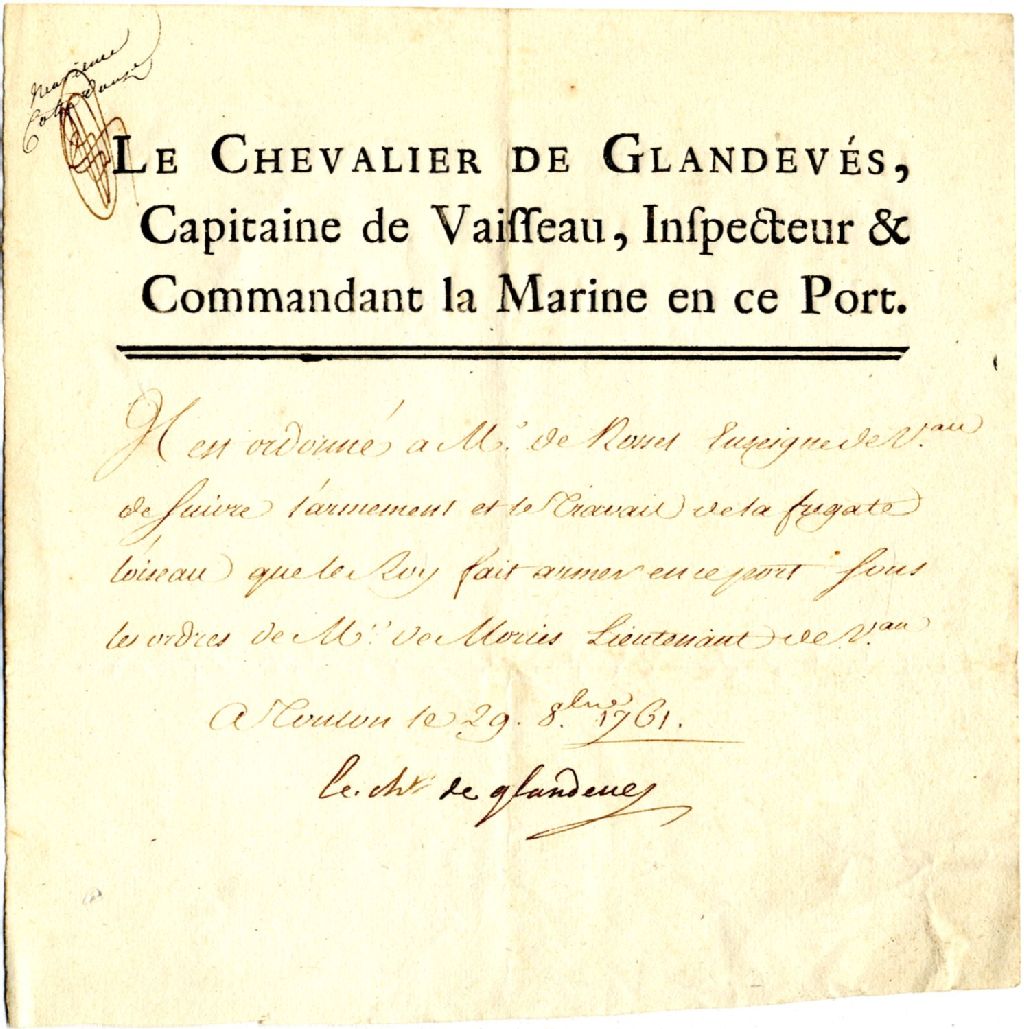 LE CHEVALIER DE GLANDEVÉS,
Capitaine de Vaiſſeau, Inſpecteur &
Commandant la Marine en ce Port.
Il est ordonné a Mr. de Rosset Enzeigne de Vau
de suivre l'armement et le Travail de la fregate
l'oiseau que le Roy fait armer en ce port sous
les ordres de Mr. de Moriès Lieutenant de Vau
A Toulon le 29. 8bre 1761.
Le. chr de glandeves